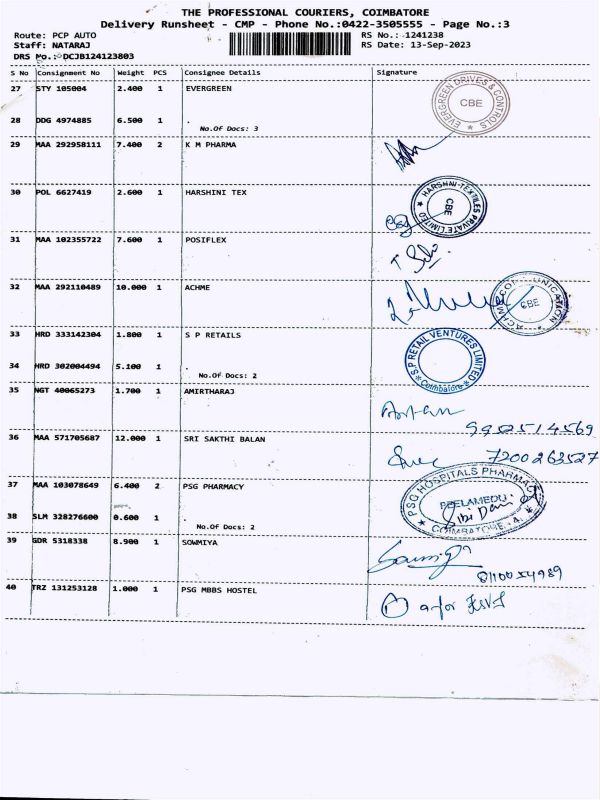 THE PROFESSIONAL COURIERS, COIMBATORE
Delivery Runsheet - CMP - Phone No.:0422-3505555 - Page No.:3
Route: PCP AUTO RS No.: 1241238
Staff: NATARAJ RS Date: 13-Sep-2023
DRS No.: DCJB124123803
S No Consignment No Weight PCS Consignee Details Signature
27 STY 105004 2.400 1 EVERGREEN
EVERGREEN DRIVES & CONTROLS CBE
28 DDG 4974885 6.500 1 .
No.Of Docs: 3
29 MAA 292958111 7.400 2 K M PHARMA
30 POL 6627419 2.600 1 HARSHINI TEX
HARSHNI TEXTILES PRIVATE LIMITED CBE
31 MAA 102355722 7.600 1 POSIFLEX
32 MAA 292110489 10.000 1 ACHME
ACHME COMMUNICATION CBE
33 HRD 333142304 1.800 1 S P RETAILS
S.P RETAIL VENTURES LIMITED Coimbatore
34 HRD 302004494 5.100 1 .
No.Of Docs: 2
35 NGT 40065273 1.700 1 AMIRTHARAJ
9952514569
36 MAA 571705687 12.000 1 SRI SAKTHI BALAN
7200263527
37 MAA 103078649 6.400 2 PSG PHARMACY
PSG HOSPITALS PHARMACY PEELAMEDU COIMBATORE - 4.
38 SLM 328276600 0.600 1 .
No.Of Docs: 2
39 GDR 5318338 8.900 1 SOWMIYA
40 TRZ 131253128 1.000 1 PSG MBBS HOSTEL